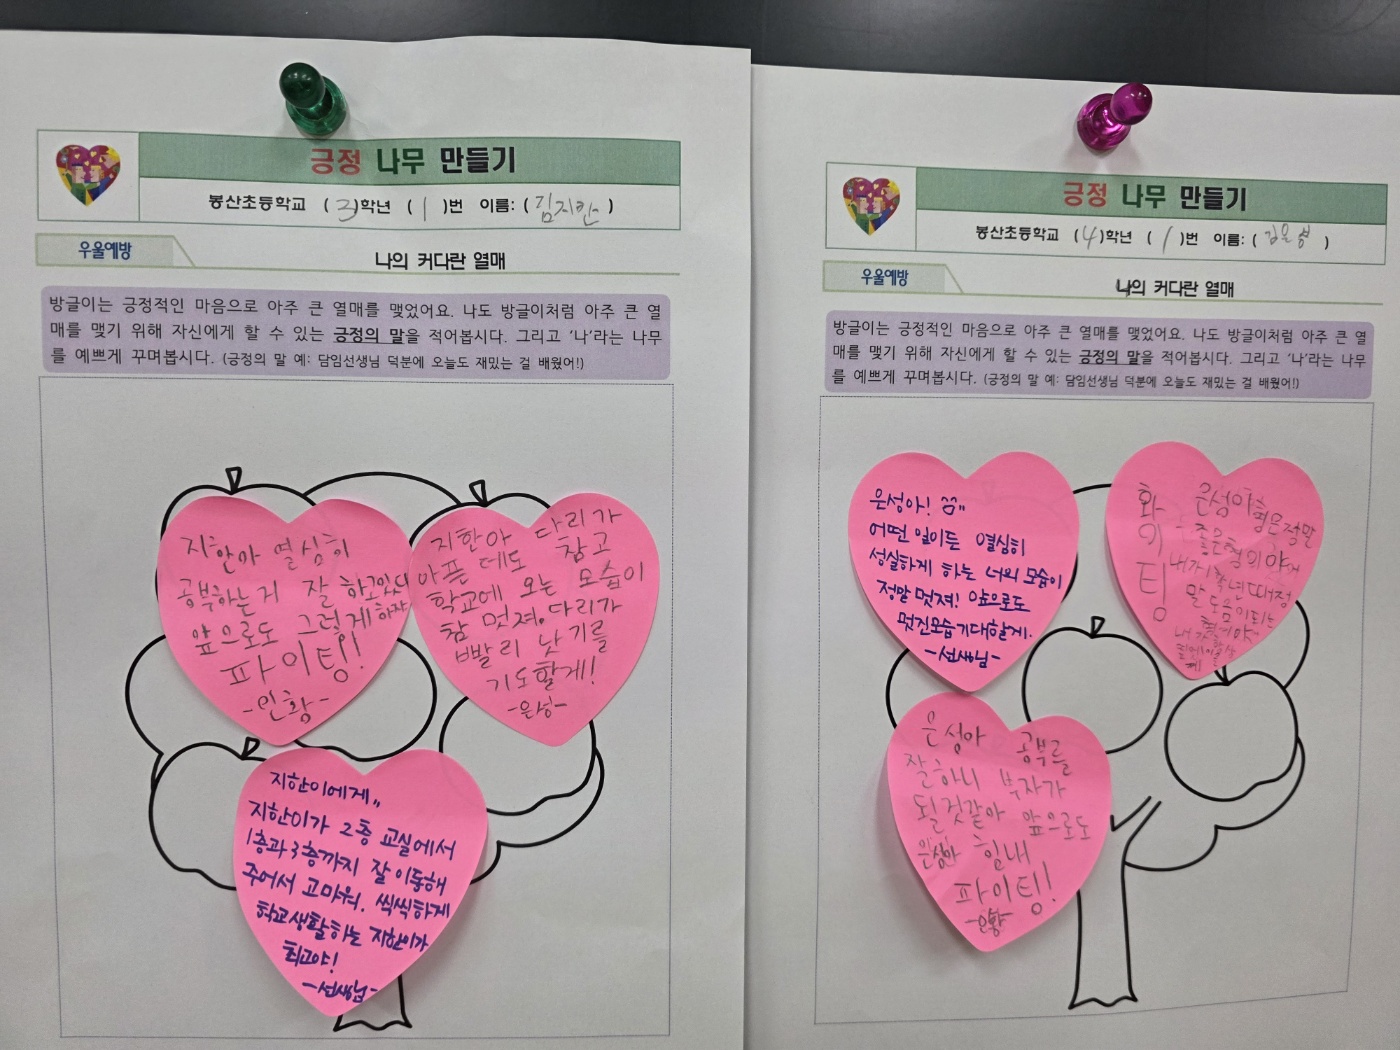 긍정 나무 만들기
봉산초등학교 (3)학년 (1)번 이름: (김지한)
우울예방
나의 커다란 열매
방글이는 긍정적인 마음으로 아주 큰 열매를 맺었어요. 나도 방글이처럼 아주 큰 열
매를 맺기 위해 자신에게 할 수 있는 긍정의 말을 적어봅시다. 그리고 '나'라는 나무
를 예쁘게 꾸며봅시다. (긍정의 말 예: 담임선생님 덕분에 오늘도 재밌는 걸 배웠어!)
지한아 열심히
공부하는거 잘 하고있다
앞으로도 그렇게 하자
파이팅!
-인황-
지한아 다리가
아픈 데도 참고
학교에 오는 모습이
참 멋져. 다리가
빨리 낫기를
기도할게!
-은성-
지한이에게,,
지한이가 2층 교실에서
1층과 3층까지 잘 이동해
주어서 고마워. 씩씩하게
학교생활하는 지한이가
최고야!
-선생님-
긍정 나무 만들기
봉산초등학교 (4)학년 (1)번 이름: (김은성)
우울예방
나의 커다란 열매
방글이는 긍정적인 마음으로 아주 큰 열매를 맺었어요. 나도 방글이처럼 아주 큰 열
매를 맺기 위해 자신에게 할 수 있는 긍정의 말을 적어봅시다. 그리고 '나'라는 나무
를 예쁘게 꾸며봅시다. (긍정의 말 예: 담임선생님 덕분에 오늘도 재밌는 걸 배웠어!)
은성아!
어떤 일이든 열심히
성실하게 하는 너의 모습이
정말 멋져! 앞으로도
멋진모습기대할게.
-선생님-
화이팅
은성이형은정말
좋은형의야
내가1학년때정
말 도움이되는
형이야
은성아 공부를
잘하니 부자가
될것같아 앞으로도
은성아 힘내
파이팅!